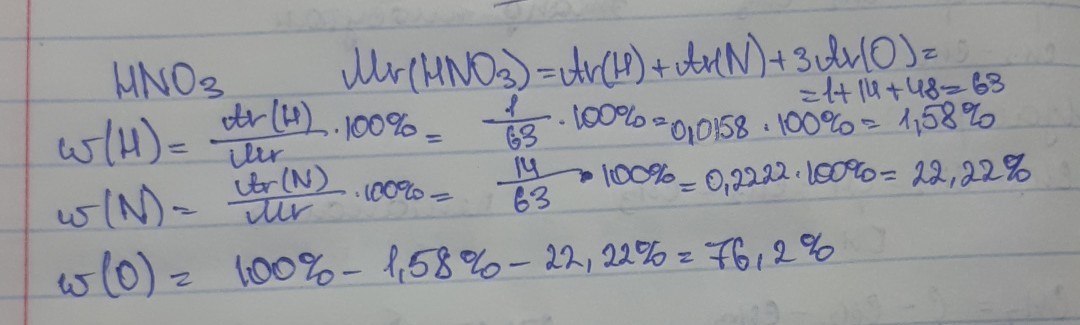 HNO3 Mr(HNO3) = Ar(H) + Ar(N) + 3Ar(O) =
= 1 + 14 + 48 = 63
w(H) = Ar(H)/Mr · 100% = 1/63 · 100% = 0,0158 · 100% = 1,58%
w(N) = Ar(N)/Mr · 100% = 14/63 · 100% = 0,2222 · 100% = 22,22%
w(O) = 100% - 1,58% - 22,22% = 76,2%